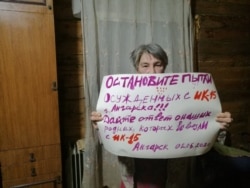 ОСТАНОВИТЕ ПЫТКИ
ОСУЖДЕННЫХ С ИК-15
г Ангарска!!!
Дайте ответ о наших
родных, которых
с ИК-15
Ангарск